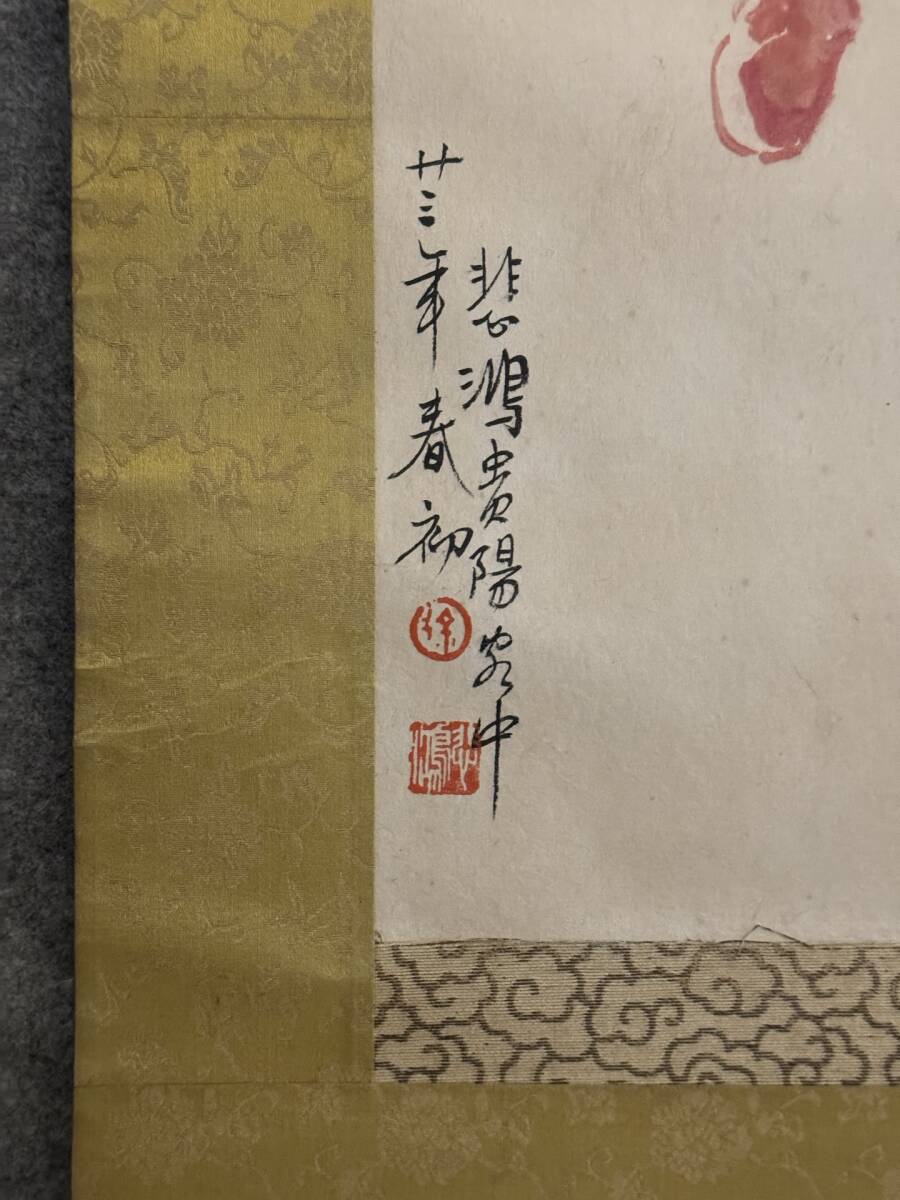 悲鴻貴陽客中
廿三年春初
徐
悲鴻